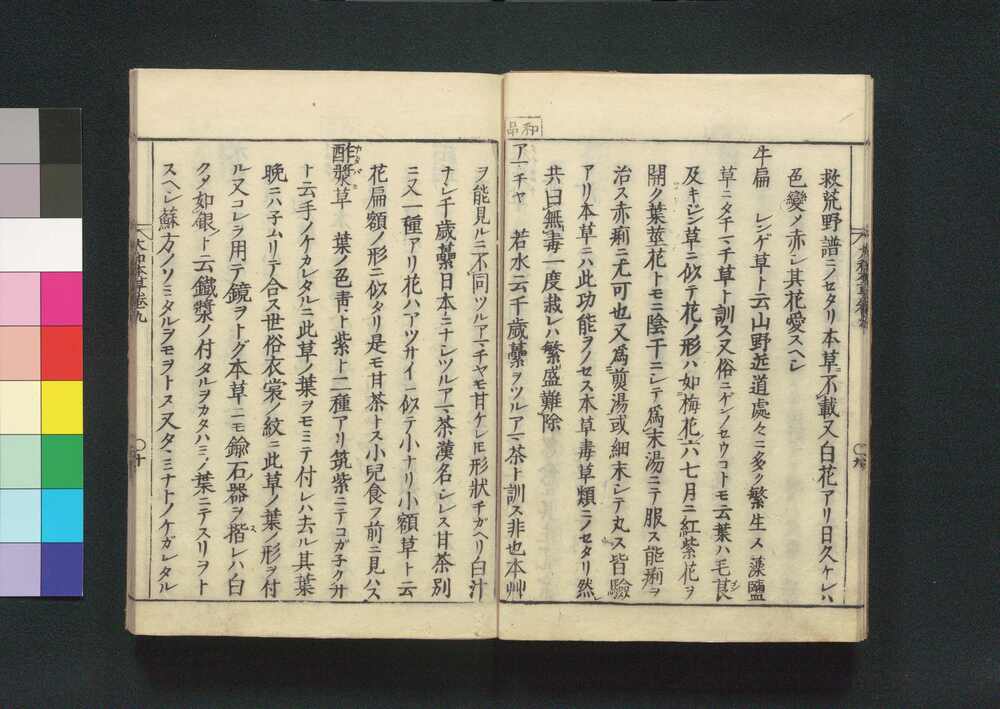 救荒野譜ニノセタリ本草ニ不載又白花アリ日久ケレハ
色變ノ赤シ其花愛スヘシ
牛扁　レンゲ草ト云山野近道處々ニ多ク繁生ス藻鹽
草ニタチマチ草ト訓ス又俗ニゲンノセウコトモ云葉ハ毛茛
及キジン草ニ似テ花ノ形ハ如梅花六七月ニ紅紫花ヲ
開ク葉莖花トモニ陰干ニシテ爲末湯ニテ服ス能痢ヲ
治ス赤痢ニ尤可也又爲煎湯或細末シテ丸ス皆驗
アリ本草ニハ此功能ヲノセス本草毒草類ニノセタリ然
共曰無毒一度栽レハ繁盛難除
和品
アマチヤ　若水云千歳虆ヲツルアマ茶ト訓ス非也本艸
ヲ能見ルニ不同ツルアマチヤモ甘ケレ𪜈形狀チガヘリ白汁
ナシ千歳虆日本ニナシツルアマ茶漢名シレス甘茶別
ニ又一種アリ花ハアツサイニ似テ小ナリ小額草ト云
花扁額ノ形ニ似タリ是モ甘茶トス小兒食フ前ニ見ハス
酢漿草　葉ノ色靑ト紫ト二種アリ筑紫ニテコガ子クサ
カタバミ
ト云手ノケカレタルニ此草ノ葉ヲモミテ付レハ去ル其葉
晩ニハ子ムリテ合ス世俗衣裳ノ紋ニ此草ノ葉ノ形ヲ付
ル又コレヲ用テ鏡ヲトグ本草ニモ鍮石器ヲ揩レハ白
クメ如銀ト云鐵漿ノ付タルヲカタハミノ葉ニテスリヲト
スヘシ蘇方ノソミタルヲモヲトス又タヽミナトノケガレタル
大和本草卷九
〇九
〇十